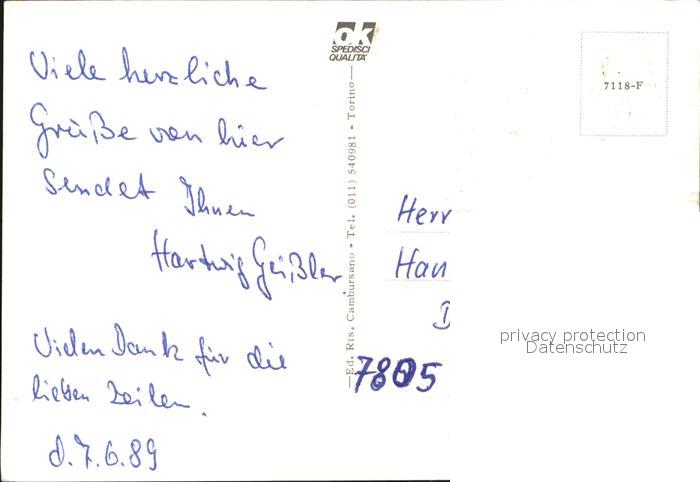 Viele herzliche
Grüße von hier
sendet Ihnen
Hartwig Geißler.
Vielen Dank für die
lieben Zeilen.
d. 7.6.89
ok
SPEDISCI
QUALITA'
Ed. Ris. Cambursano • Tel. (011) 540981 - Torino
7118-F
Herr
Han
D
7805
privacy protection
Datenschutz